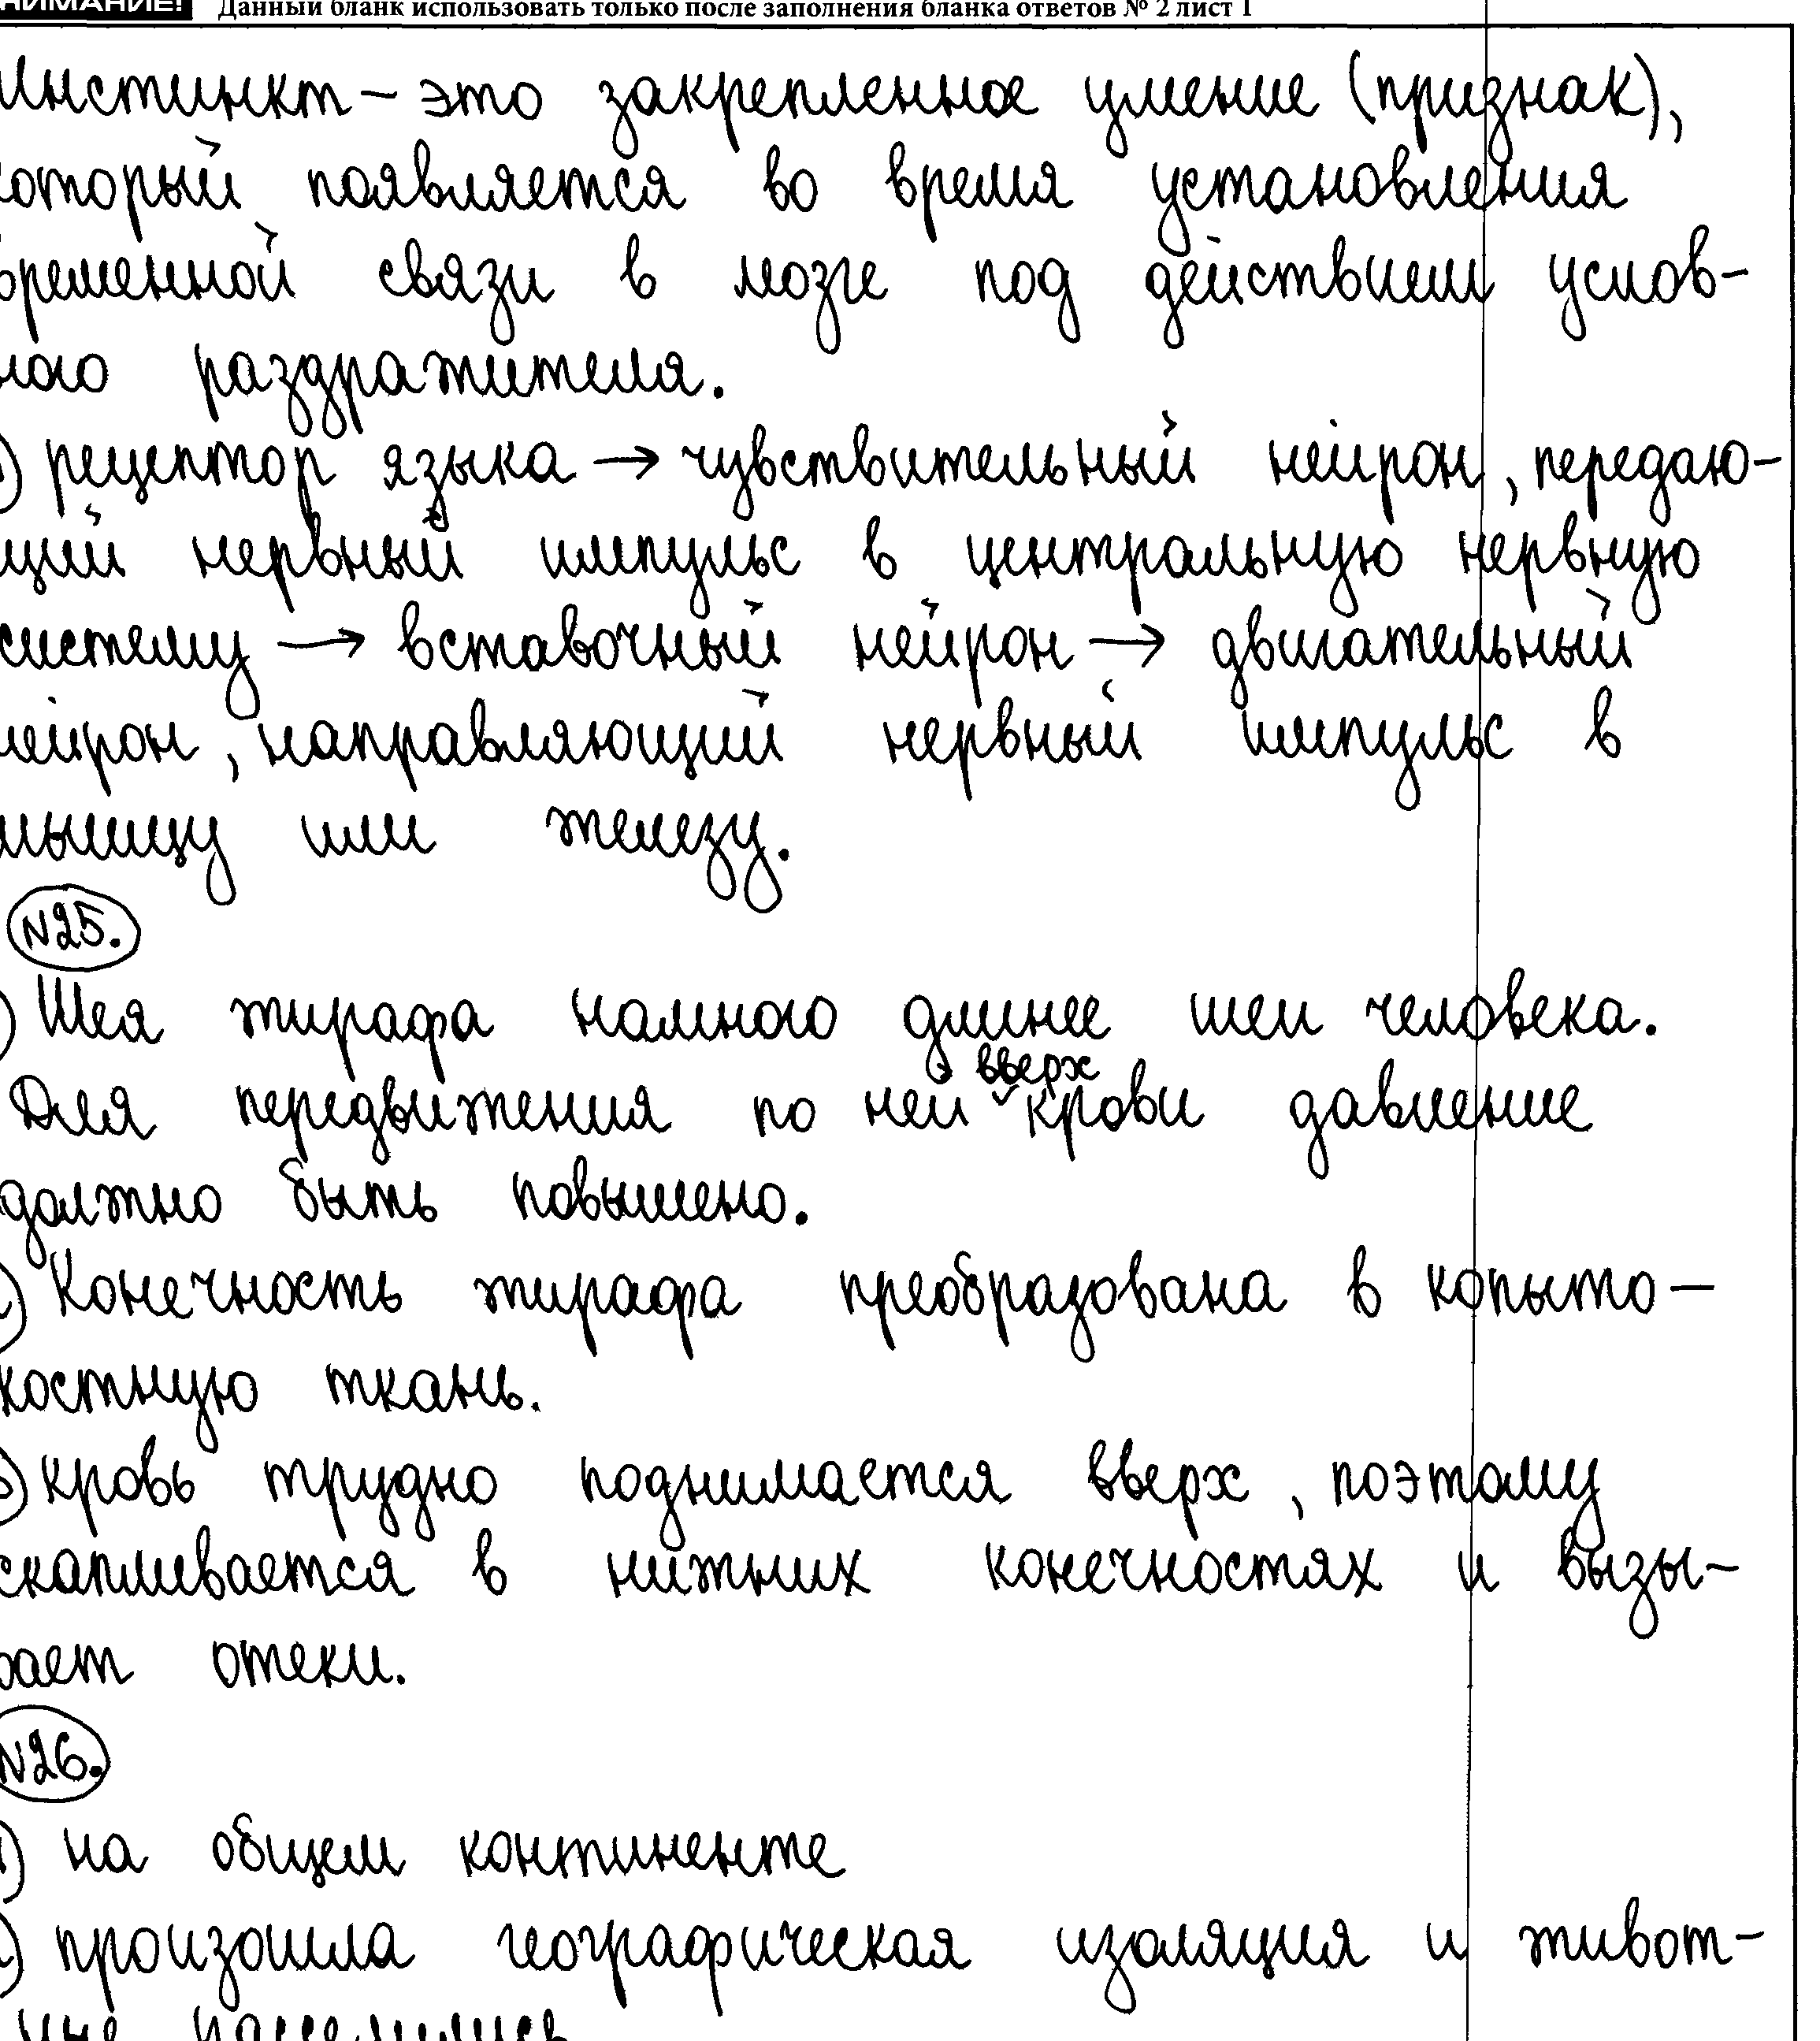 ВНИМАНИЕ! Данный бланк использовать только после заполнения бланка ответов № 2 лист 1
Инстинкт – это закрепленное умение (признак),
который появляется во время установления
временной связи в мозге под действием услов-
ного раздражителя.
) рецептор языка → чувствительный нейрон, передаю-
щий нервный импульс в центральную нервную
систему → вставочный нейрон → двигательный
нейрон, направляющий нервный импульс в
мышцу или железу.
N25.
) Шея жирафа намного длинее шеи человека.
Для передвижения по ней вверх крови давление
должно быть повышено.
) Конечность жирафа преобразована в копыто –
костную ткань.
3) кровь трудно поднимается вверх, поэтому
скапливается в нижних конечностях и вызы-
вает отеки.
N26.
1) на общем континенте
) произошла географическая изоляция и живот-
ные расселились